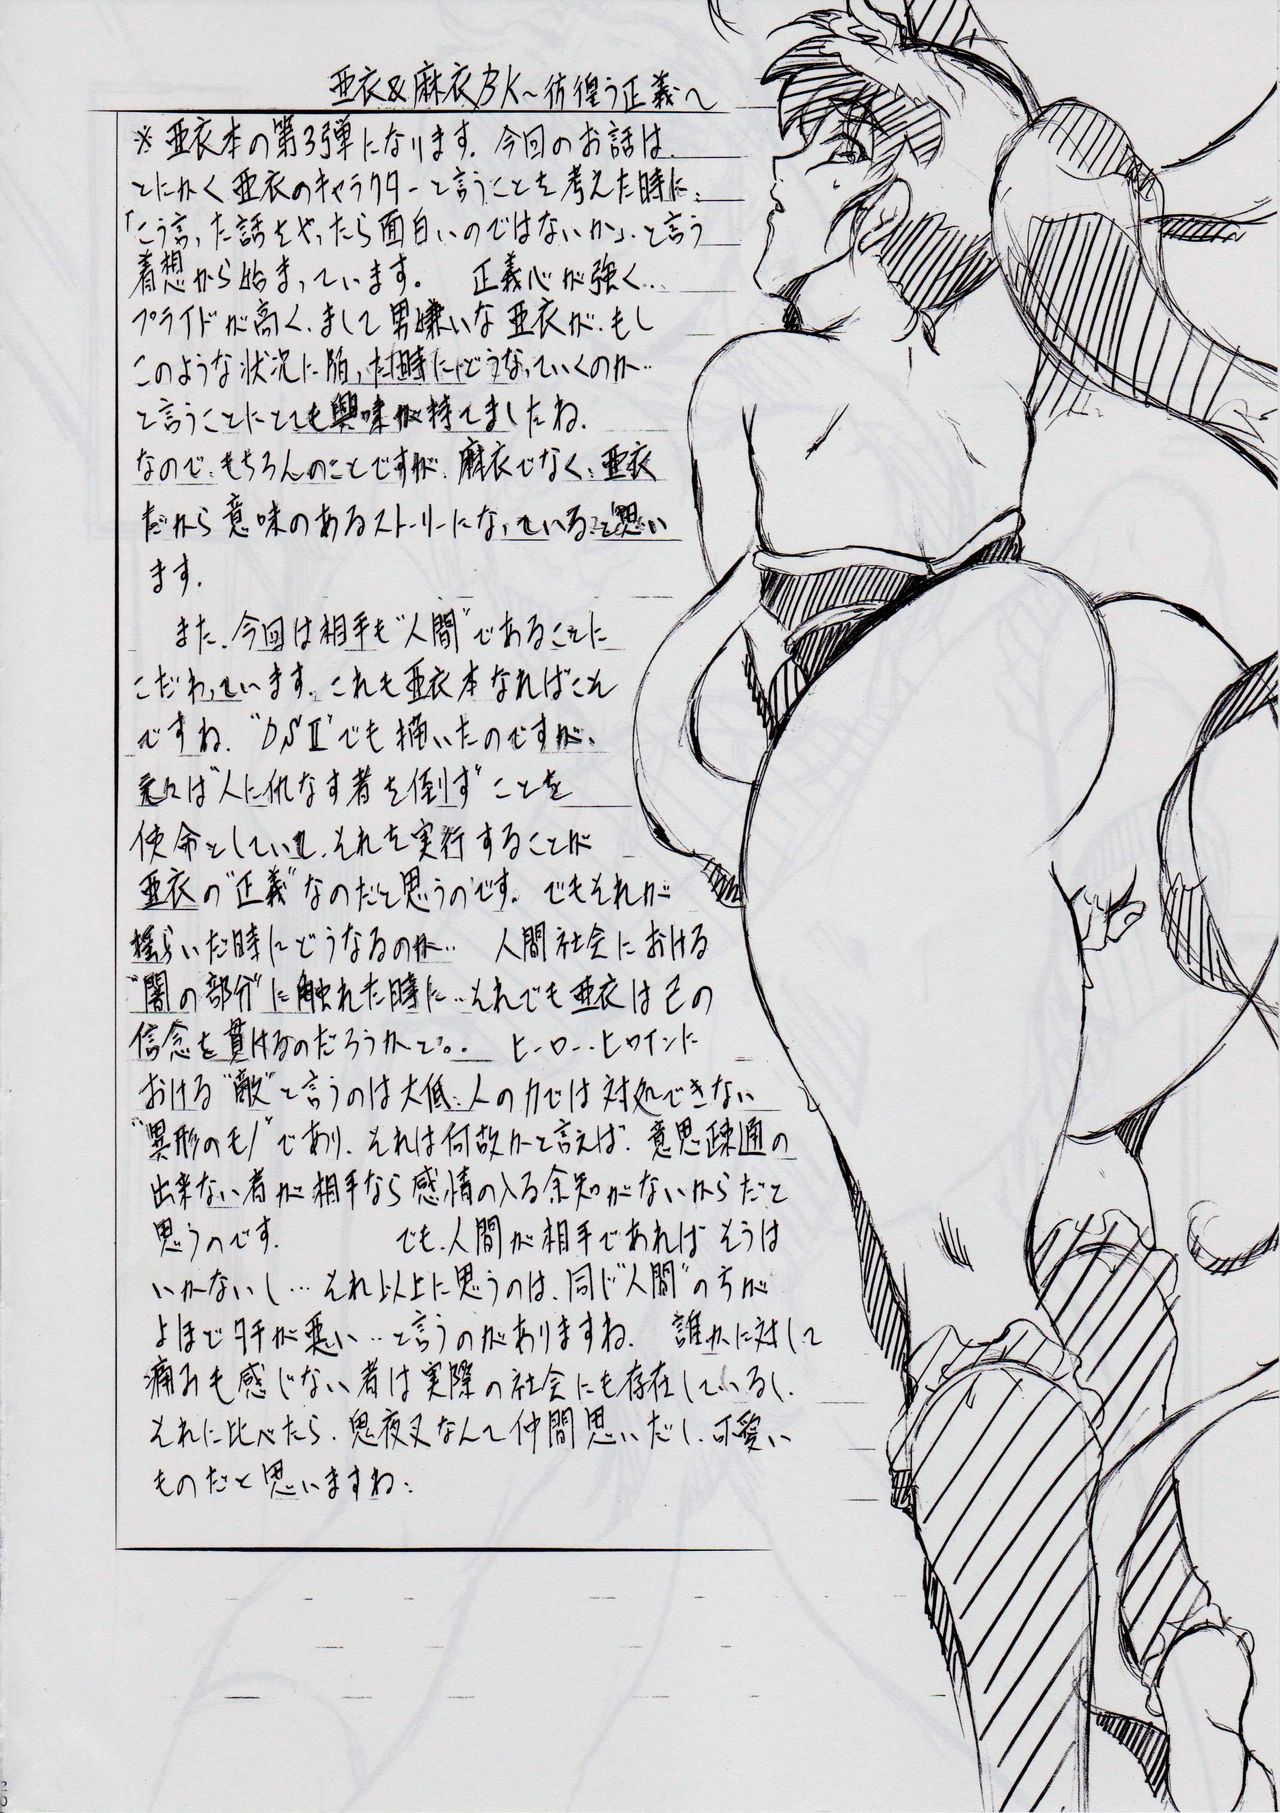 亜衣&麻衣BK～彷徨う正義へ
※亜衣本の第3弾になります.今回のお話は、
とにかく亜衣のキャラクターと言うことを考えた時に、
「こう言った話をやったら面白いのではないか」.と言う
着想から始まっています。 正義心が強く…
プライドが高く.まして男嫌いな亜衣が.もし
このような状況に陥った時に、どうなっていくのか…
と言うことにとても興味が持てましたね.
なので、もちろんのことですが、麻衣でなく、亜衣
だから意味のあるストーリーになっていると思い
ます.
また、今回は相手も"人間"であることに
こだわっています。これも亜衣本なればこそ
ですね."DSⅡ"でも描いたのですが、
元々は"人に仇なす者を倒す"ことを
使命としていて、それを実行することが
亜衣の"正義"なのだと思うのです。でもそれが
揺らいだ時にどうなるのか… 人間社会における
"闇の部分"に触れた時に…それでも亜衣は己の
信念を貫けるのだろうかと。. ヒーロー、ヒロインに
おける"敵"と言うのは大低、人の力では対処できない
"異形のモノ"であり、それは何故かと言えば、意思疎通の
出来ない者が相手なら感情の入る余知がないからだと
思うのです. でも、人間が相手であればそうは
いかないし…それ以上に思うのは、同じ"人間"の方が
よほどタチが悪い…と言うのがありますね. 誰かに対して
痛みも感じない者は実際の社会にも存在しているし、
それに比べたら、鬼夜叉なんて仲間思いだし、可愛い
ものだと思いますね、
20